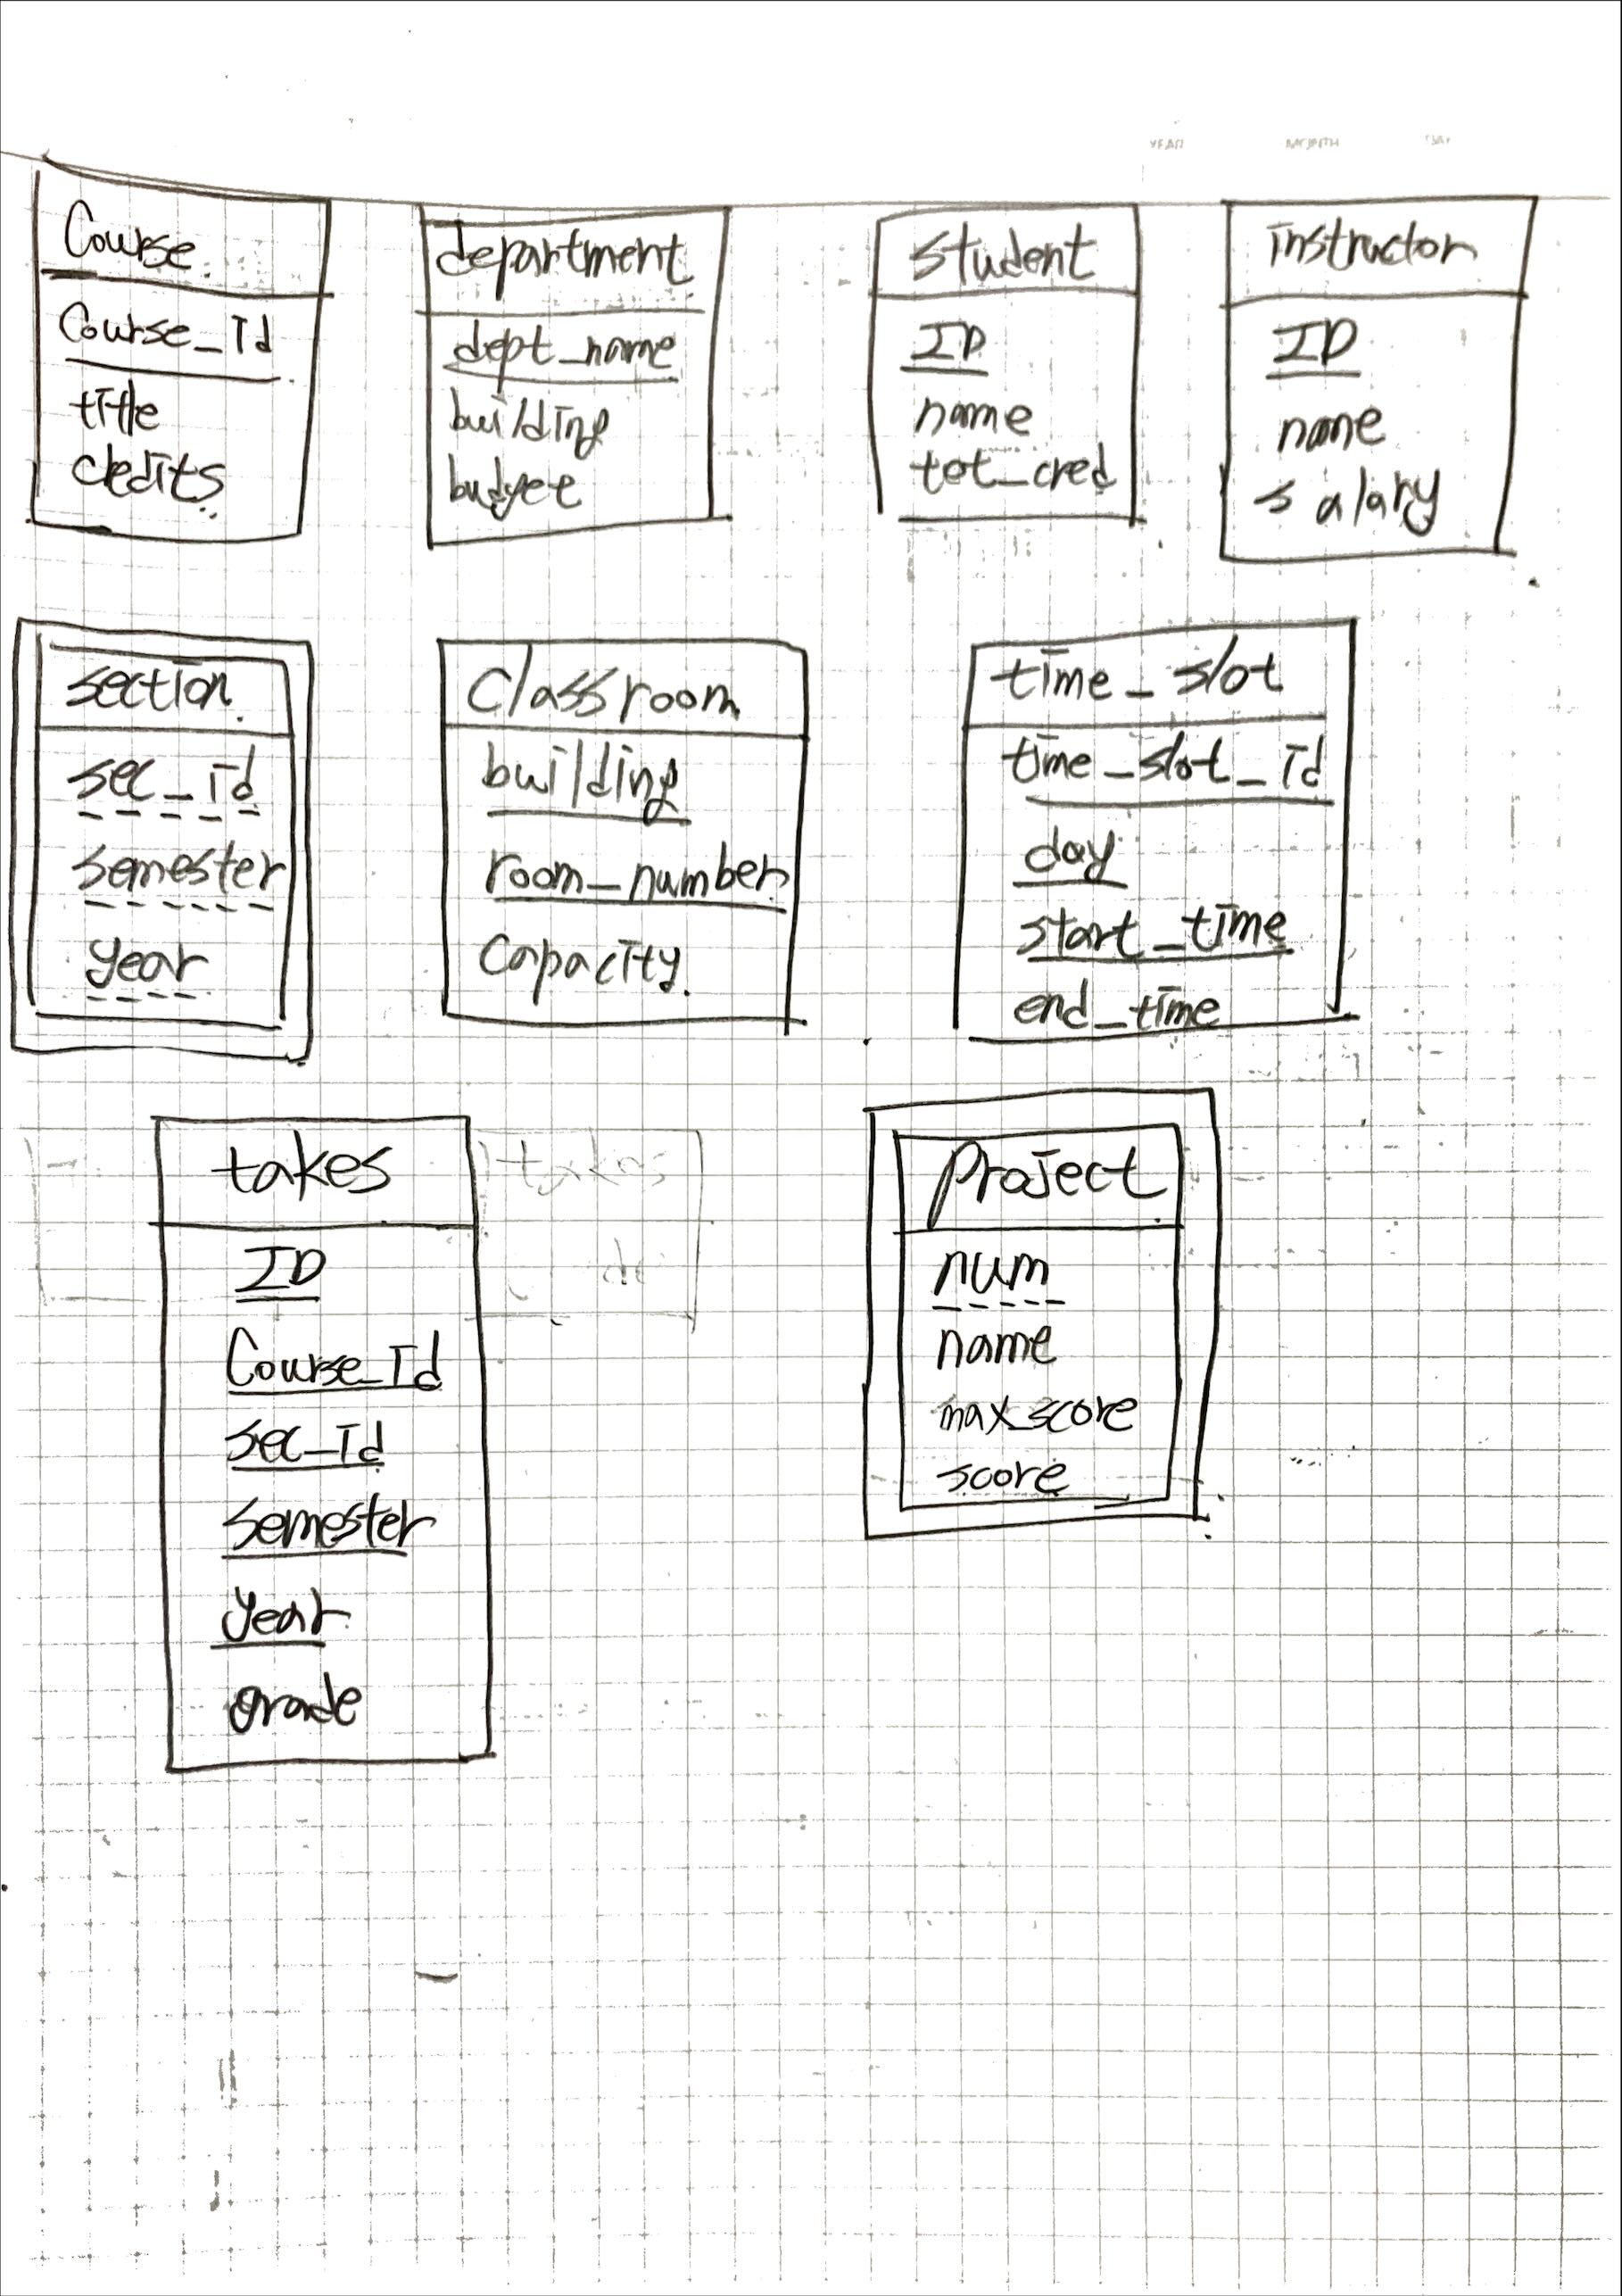 YEAR MONTH DAY
Course
Course_id
title
credits
department
dept_name
building
budget
student
ID
name
tot_cred
instructor
ID
name
salary
section
sec_id
semester
year
Classroom
building
room_number
Capacity
time_slot
time_slot_id
day
start_time
end_time
takes
ID
Course_id
sec_id
semester
year
grade
takes
project
num
name
max_score
score